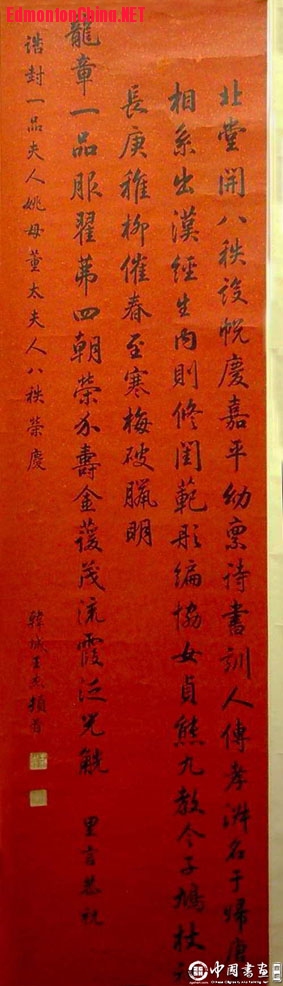 EdmontonChina.NET
北堂開八秩設帨慶嘉平幼稟詩書訓人傳孝淑名于歸唐
相系出漢經生內則修閨範彤編協女貞熊丸教令子鳩杖
長庚稚柳催春至寒梅破臘明
龍章一品服翟茀四朝榮介壽金萲茂流霞泛兕觥
里言恭祝
誥封一品夫人姚母董太夫人八秩榮慶
韓城王杰頓首
中國書畫